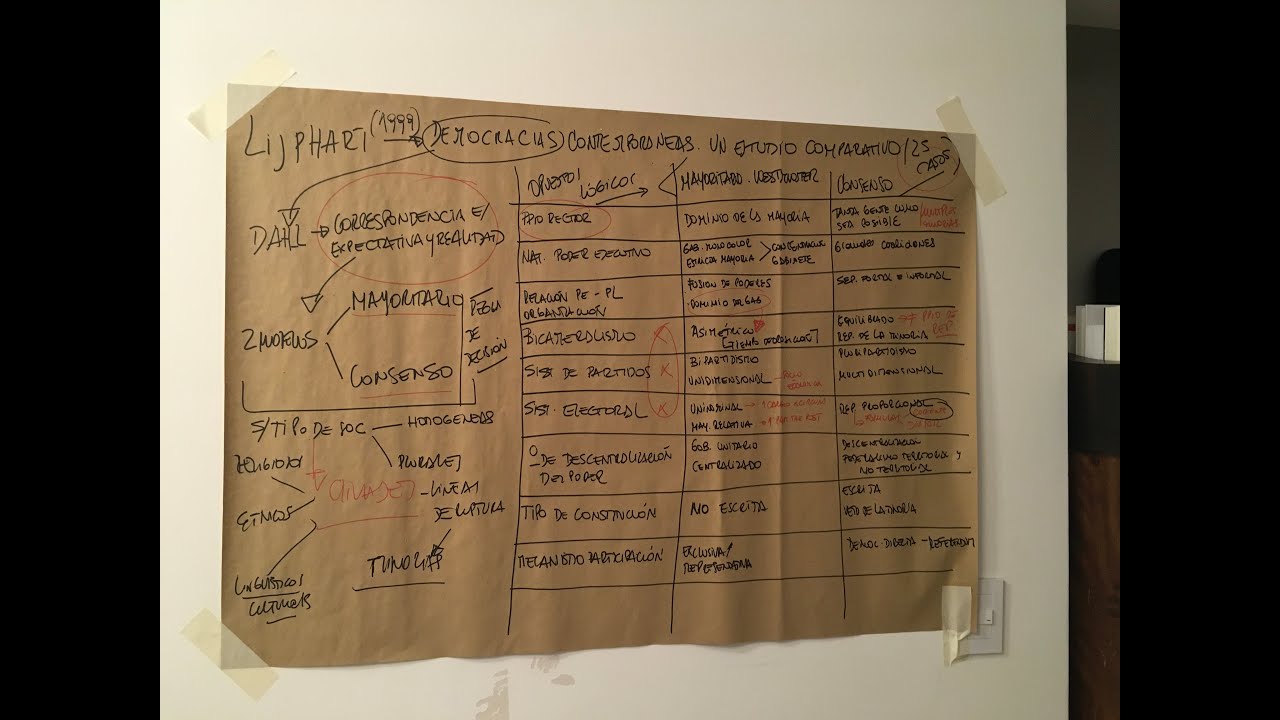 LIJPHART (1999) → DEMOCRACIAS CONTEMPORANEAS. UN ESTUDIO COMPARATIVO (25 CASOS)
DAHL → CORRESPONDENCIA E/
EXPECTATIVA Y REALIDAD
2 MODELOS
MAYORITARIO
CONSENSO
REGLA
DE
DECISIÓN
S/TIPO DE SOC
HOMOGENEAS
PLURALES
RELIGIOSOS
ETNICOS
LINGÜISTICOS/
CULTURALES
CLIVAGES - LÍNEAS
DE RUPTURA
OPUESTOS
LÓGICOS
MAYORITARIO. WESTMINSTER
CONSENSO
PPIO RECTOR
DOMINIO DE LA MAYORIA
TANTA GENTE COMO
SEA POSIBLE
NAT. PODER EJECUTIVO
GAB. MONOCOLOR
ESTRECHA MAYORIA
GABINETE
GRANDES COALICIONES
RELACIÓN PE - PL
ORGANIZACIÓN
FUSION DE PODERES
DOMINIO DEL GAB
SEP. FORMAL E INFORMAL
BICAMERALISMO
ASIMÉTRICO
EQUILIBRADO → PPIO DE REP.
REP. DE LA MINORIA
SIST DE PARTIDOS
BIPARTIDISMO
UNIDIMENSIONAL
PLURIPARTIDISMO
MULTIDIMENSIONAL
SIST. ELECTORAL
UNINOMINAL
MAY. RELATIVA
REP. PROPORCIONAL
FORMULAS
Gº DE DESCENTRALIZACIÓN
DEL PODER
GOB. UNITARIO
CENTRALIZADO
DESCENTRALIZACION
FEDERALISMO TERRITORIAL Y
NO TERRITORIAL
TIPO DE CONSTITUCIÓN
NO ESCRITA
ESCRITA
VETO DE LA MINORIA
MECANISMO PARTICIPACIÓN
EXCLUSIVA/
REPRESENTATIVA
DEMOC. DIRECTA - REFERENDUM